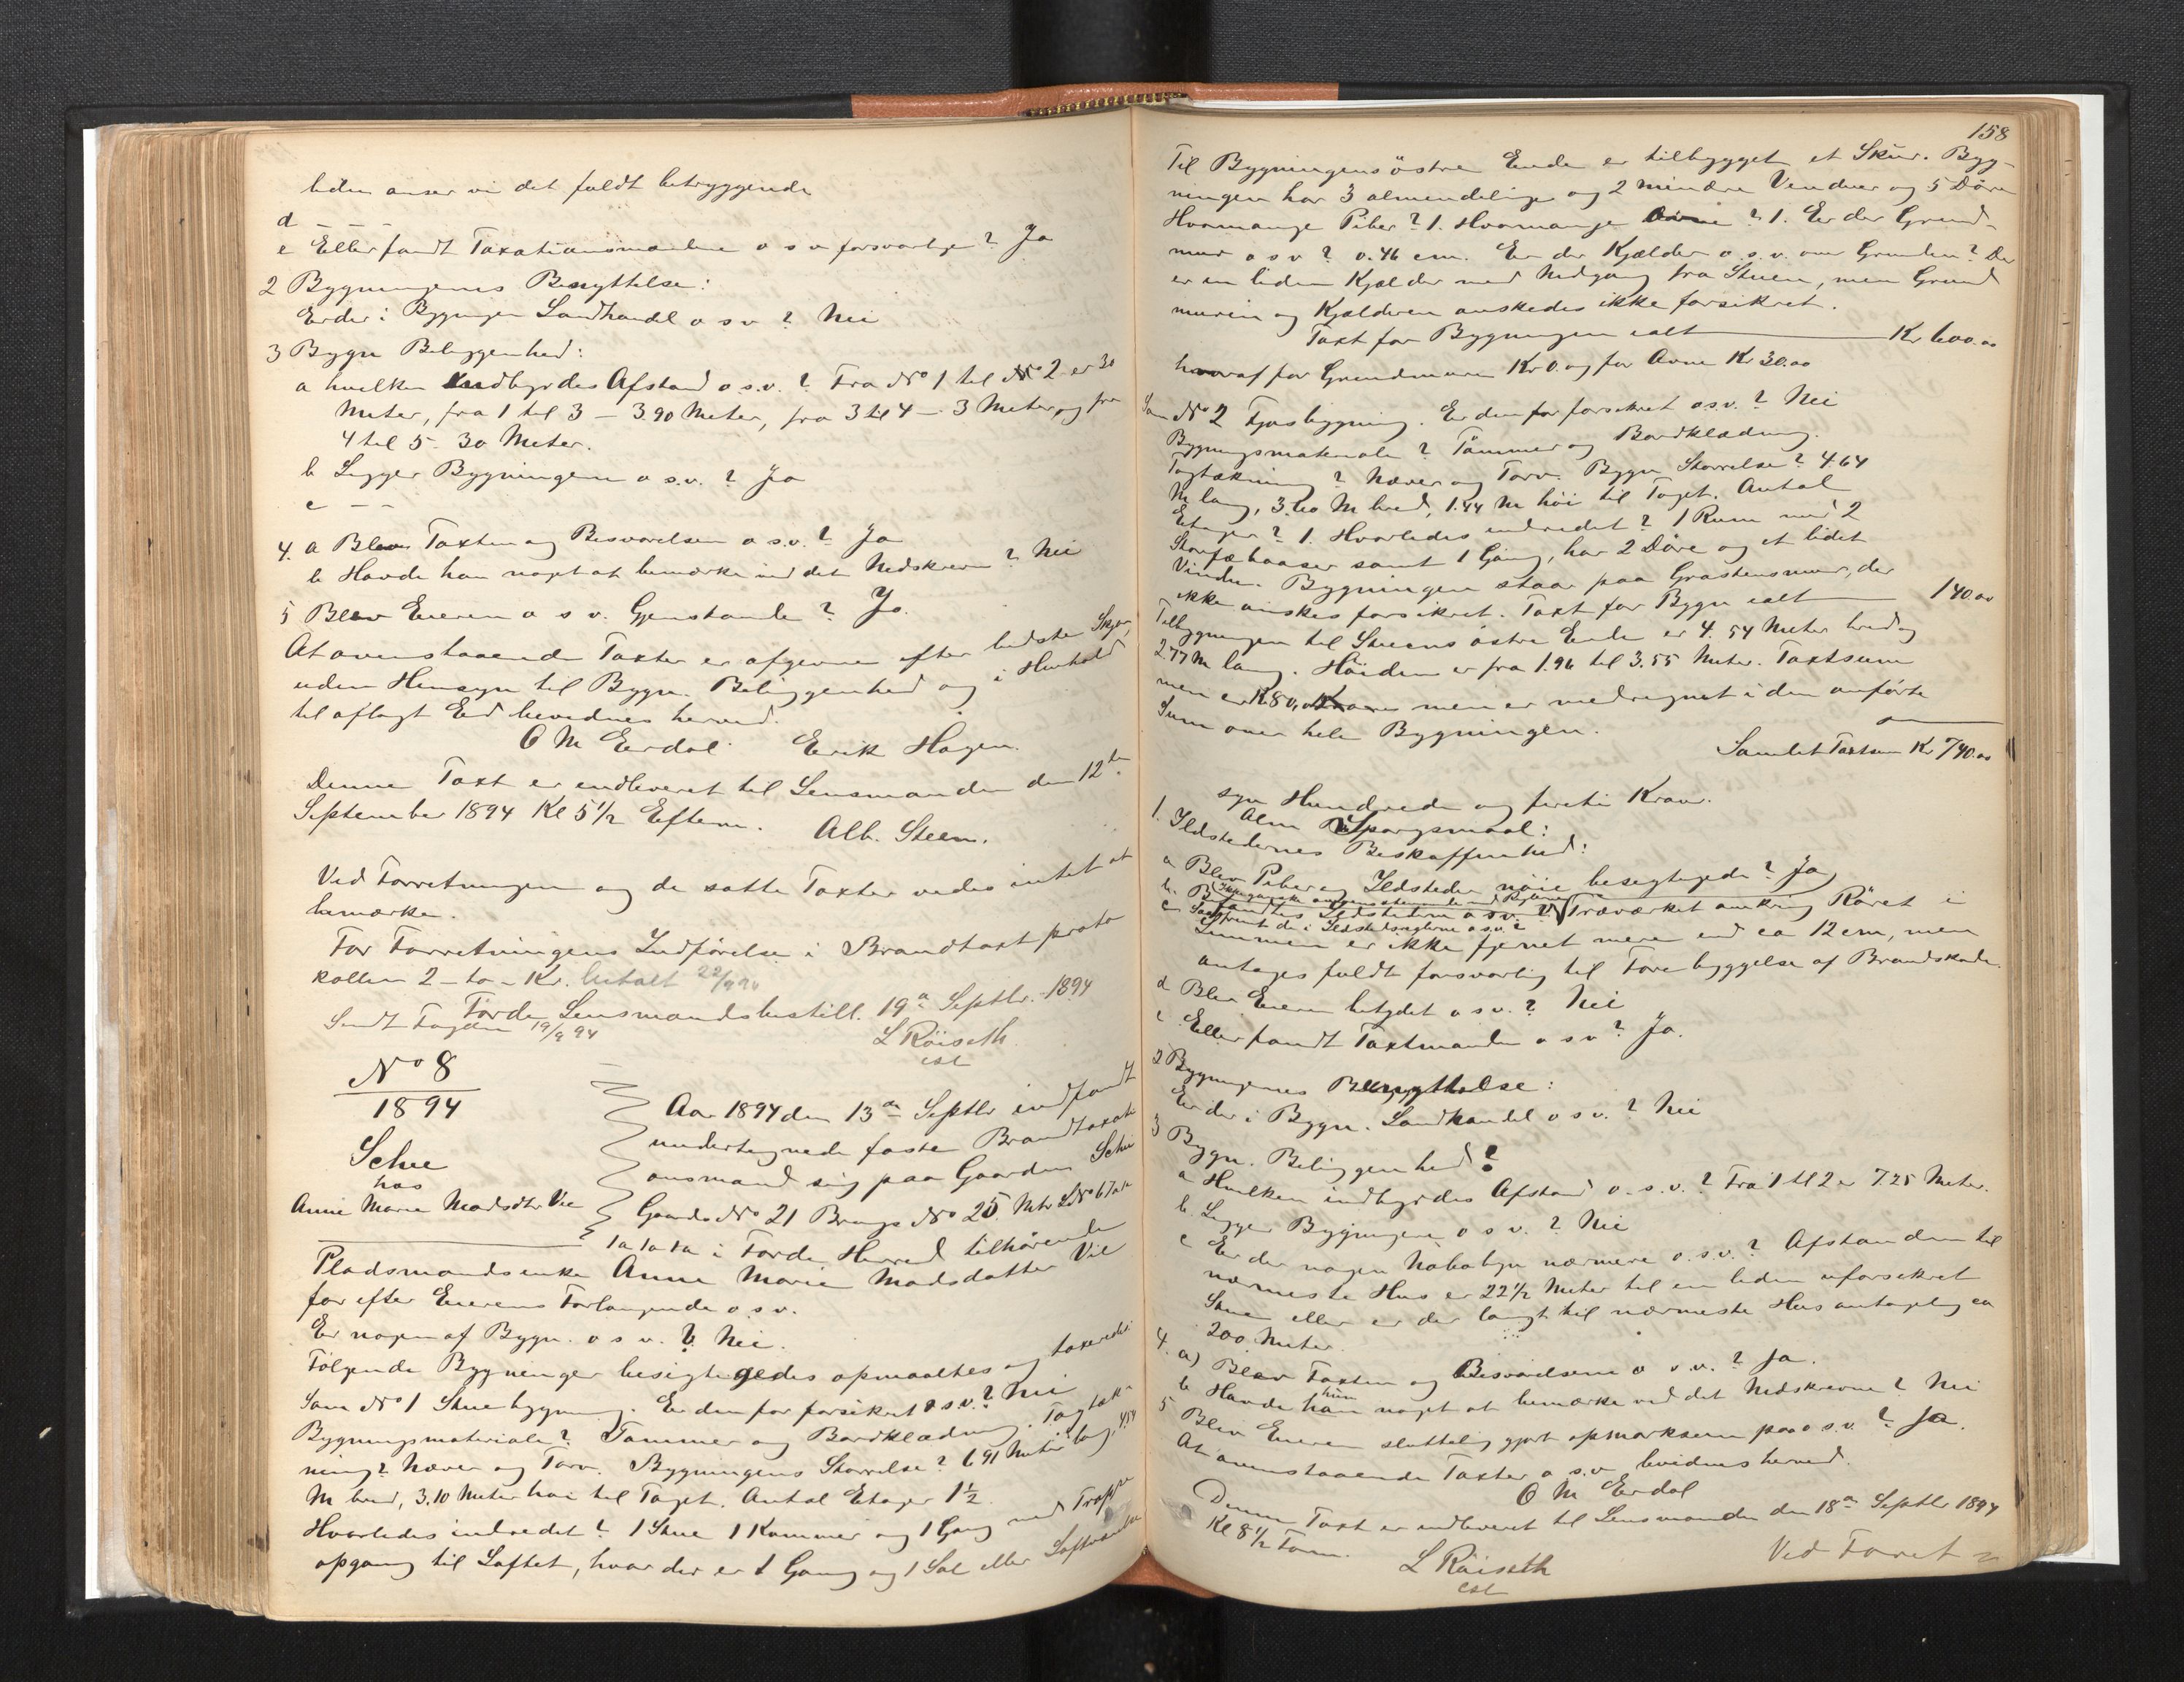 liden anser vi det fuldt betryggende
d - - -
e Eller fandt Taxationsmændene o s v forsvarlige? Ja
2 Bygningernes Benyttelse:
Er der i Bygningen Landhandel o s v? Nei
3 Bygn Beliggenhed:
a hvilken Indbyrdes Afstand o.s.v.? Fra No 1 til No 2 er 30
Meter, fra 1 til 3 - 3.90 Meter, fra 3 til 4 - 3 Meter og fra
4 til 5 - 30 Meter.
b Ligger Bygningerne o s.v.? Ja
c - -
4. a Blev Taxten og Besvarelsen o s.v.? Ja
b Havde han noget at bemærke ved det Nedskrevne? Nei
5 Blev Eieren o s v. Gjenstande? Ja.
At ovenstaaende Taxter er afgivne efter bedste Skjøn,
uden Hensyn til Bygn. Beliggenhed og i Henhold
til aflagt Eed bevidnes herved.
O M Erdal Erik Hagen.
Denne Taxt er indleveret til Lensmanden den 12te
September 1894 Kl 5 1/2 Efterm. Alb. Steen.
Ved Forretningen og de satte Taxter vedes intet at
bemærke.
For Forretningens Indførelse i Brandtaxtproto
kollen 2 - to - Kr. betalt
Førde Lensmandsbestill. 19de Septbr. 1894
Sendt Fogden 19/9 94 L Röiseth
cst
No 8
1894
Schee
hos
Anne Marie Madsdtr Vie
Aar 1894 den 13de Septbr indfandt
undertegnede faste Brandtaxati
onsmand sig paa Gaarden Schei
Gaards No 21 Brugs No 25. Mtr LNo 67
1a 1a 1a i Førde Herred tilhørende
Pladsmandsenke Anne Marie Madsdatter Vie
for efter Eierens Forlangende o s v.
Er nogen af Bygn. o s v.? Nei.
Følgende Bygninger besigtigedes opmaaltes og taxeredes
Som No 1 Stuebygning. Er den før forsikret o s.v.? Nei
Bygningsmateriale? Tømmer og Bordklædning. Tagtæk-
ning? Næver og Torv. Bygningens Størrelse? 6.91 Meter lang, 4.54
M bred, 3.10 Meter høi til Taget. Antal Etager 1 1/2
Hvorledes indredet? 1 Stue 1 Kammer og 1 Gang med Trappe
opgang til Loftet, hvor der er 1 Gang og 1 Sal eller
158
Til Bygningens östre Ende er tilbygget et Skur. Byg-
ningen har 3 almindelige og 2 mindre Vinduer og 5 Döre
Hvormange Piber? 1. Hvormange Ovne? 1. Er der Grund-
mur o s v? 0.46 cm. Er der Kjælder o.s.v. om Grunden? Der
er en liden Kjælder med Nedgang fra Stuen, men Grund
muren og Kjælderen ønskedes ikke forsikret.
Taxt for Bygningen ialt Kr 600.00
hvoraf for Grundmuren Kr 0. og for Ovne Kr 30.00
Som No 2 Fjøsbygning. Er den før forsikret o s.v.? Nei
Bygningsmateriale? Tømmer og Bordklædning.
Tagtækning? Næver og Torv. Bygn Størrelse? 4.64
M lang, 3.60 M bred, 1.44 M höi til Taget. Antal
Etager? 1. Hvorledes indredet? 1 Rum med 2
Storfæbaaser samt 1 Gang, har 2 Döre og et lidet
Vindue. Bygningen staar paa Graastensmur, der
ikke ønskes forsikret. Taxt for Bygn ialt 140.00
Tilbygningen til Stuens östre Ende er 4.54 Meter bred og
2.77 M lang. Höiden er fra 1.96 til 3.55 Meter. Taxtsum
men er K 80, men er medregnet i den anförte
Sum over hele Bygningen.
Samlet Taxtsum Kr 740.00
syv Hundrede og firti Kroner.
Alm Spørgsmaal:
1. Ildstedernes Beskaffenhed:
a Blev Piber og Ildsteder nöie besigtigede? Ja
b. Fandtes Ildstederne o s v.? Træværket omkring Röret i
c Fandt de i Ildstedsreglerne o s.v.?
Limmen er ikke fjernet mere end ca 12 cm, men
antages fuldt forsvarlig til Forebyggelse af Brandskade.
d Blev Eieren betydet o s v.? Nei
e. Eller fandt Taxtmanden o s v? Ja.
2 Bygningernes Benyttelse:
Er der i Bygn. Landhandel o s v.? Nei
3 Bygn. Beliggenhed?
a Hvilken indbyrdes Afstand o.s.v.? Fra 1 til 2 er 7.25 Meter.
b. Ligger Bygningerne o s v.? Nei
c Er der nogen Nabobygn nærmere o.s.v.? Afstanden til
nærmeste Hus er 22 1/2 Meter til en liden uforsikret
Stue eller er der langt til nærmeste Hus antagelig ca
200 Meter.
4. a) Blev Taxten og Besvarelserne o s v.? Ja.
b Havde han hun noget at bemærke ved det Nedskrevne? Nei
5 Blev Eieren sluttelig gjort opmærksom paa o s.v.? Ja.
At ovenstaaende Taxter o s.v bevidnes herved.
O M Erdal
Denne Taxt er indleveret til Lensmanden den 18de Septbr 1894
Kl 8 1/2 Form. L Röiseth
cst
Ved Forret